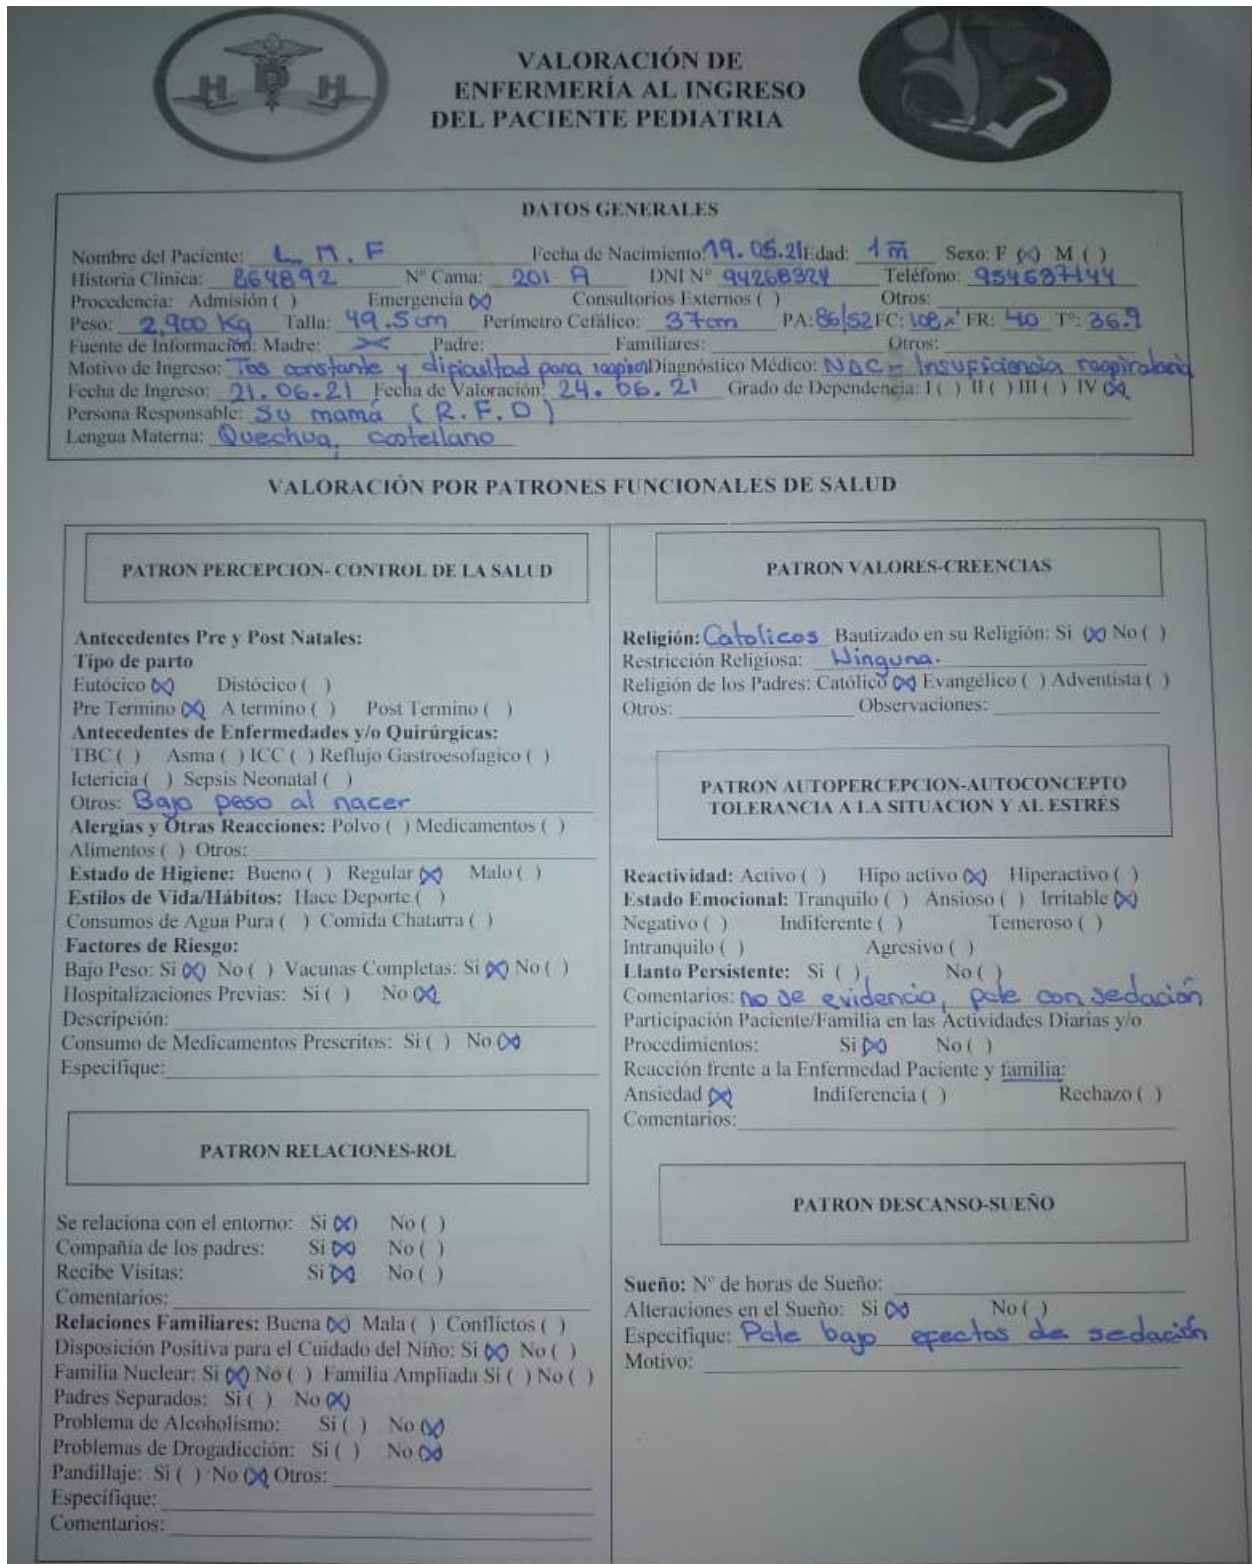 H D H
VALORACIÓN DE
ENFERMERÍA AL INGRESO
DEL PACIENTE PEDIATRIA
DATOS GENERALES
Nombre del Paciente: L. M. F Fecha de Nacimiento: 19. 05.21 Edad: 1 m Sexo: F (x) M ( )
Historia Clínica: 864892 N° Cama: 201 A DNI N° 94268324 Teléfono: 954687144
Procedencia: Admisión ( ) Emergencia (x) Consultorios Externos ( ) Otros:
Peso: 2,900 Kg Talla: 49.5 cm Perímetro Cefálico: 37cm PA: 86/52 FC: 108 x' FR: 40 T°: 36.9
Fuente de Información: Madre: x Padre: Familiares: Otros:
Motivo de Ingreso: Tos constante y dificultad para Diagnóstico Médico: NAC - Insuficiencia
Fecha de Ingreso: 21. 06.21 Fecha de Valoración: 24. 06. 21 Grado de Dependencia: I ( ) II ( ) III ( ) IV (x)
Persona Responsable: Su mamá (R.F.D)
Lengua Materna: Quechua, castellano
VALORACIÓN POR PATRONES FUNCIONALES DE SALUD
PATRON PERCEPCION- CONTROL DE LA SALUD
Antecedentes Pre y Post Natales:
Tipo de parto
Eutócico (x) Distócico ( )
Pre Termino (x) A termino ( ) Post Termino ( )
Antecedentes de Enfermedades y/o Quirúrgicas:
TBC ( ) Asma ( ) ICC ( ) Reflujo Gastroesofagico ( )
Ictericia ( ) Sepsis Neonatal ( )
Otros: Bajo peso al nacer
Alergias y Otras Reacciones: Polvo ( ) Medicamentos ( )
Alimentos ( ) Otros:
Estado de Higiene: Bueno ( ) Regular (x) Malo ( )
Estilos de Vida/Hábitos: Hace Deporte ( )
Consumos de Agua Pura ( ) Comida Chatarra ( )
Factores de Riesgo:
Bajo Peso: Si (x) No ( ) Vacunas Completas: Si (x) No ( )
Hospitalizaciones Previas: Si ( ) No (x)
Descripción:
Consumo de Medicamentos Prescritos: Si ( ) No (x)
Especifique:
PATRON RELACIONES-ROL
Se relaciona con el entorno: Si (x) No ( )
Compañia de los padres: Si (x) No ( )
Recibe Visitas: Si (x) No ( )
Comentarios:
Relaciones Familiares: Buena (x) Mala ( ) Conflictos ( )
Disposición Positiva para el Cuidado del Niño: Si (x) No ( )
Familia Nuclear: Si (x) No ( ) Familia Ampliada Si ( ) No ( )
Padres Separados: Si ( ) No (x)
Problema de Alcoholismo: Si ( ) No (x)
Problemas de Drogadicción: Si ( ) No (x)
Pandillaje: Si ( ) No (x) Otros:
Especifique:
Comentarios:
PATRON VALORES-CREENCIAS
Religión: Catolicos Bautizado en su Religión: Si (x) No ( )
Restricción Religiosa: Ninguna.
Religión de los Padres: Católico (x) Evangélico ( ) Adventista ( )
Otros: Observaciones:
PATRON AUTOPERCEPCION-AUTOCONCEPTO
TOLERANCIA A LA SITUACION Y AL ESTRÉS
Reactividad: Activo ( ) Hipo activo (x) Hiperactivo ( )
Estado Emocional: Tranquilo ( ) Ansioso ( ) Irritable (x)
Negativo ( ) Indiferente ( ) Temeroso ( )
Intranquilo ( ) Agresivo ( )
Llanto Persistente: Si ( ) No ( )
Comentarios: no se evidencia, pcte con sedación
Participación Paciente/Familia en las Actividades Diarias y/o
Procedimientos: Si (x) No ( )
Reacción frente a la Enfermedad Paciente y familia:
Ansiedad (x) Indiferencia ( ) Rechazo ( )
Comentarios:
PATRON DESCANSO-SUEÑO
Sueño: N° de horas de Sueño:
Alteraciones en el Sueño: Si (x) No ( )
Especifique: Pcte bajo efectos de sedación
Motivo: